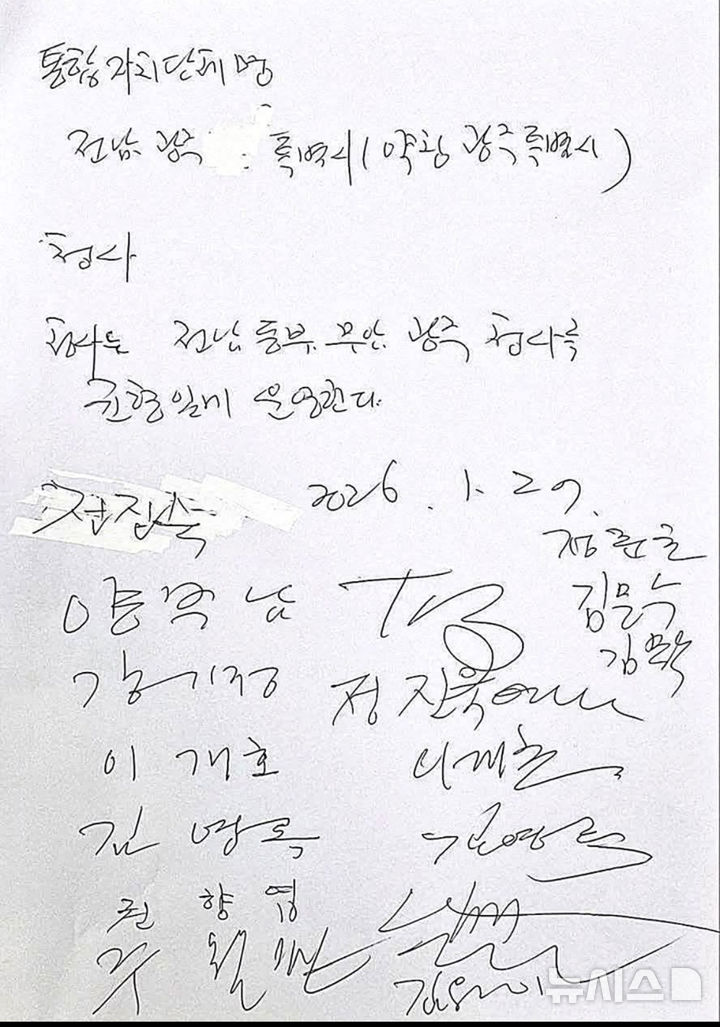 통합 자치단체 명
전남 광주 특별시 (약칭 광주특별시)
청사
청사는 전남 동부, 무안, 광주 청사를
균형있게 운영한다.
2026. 1. 27.
전진숙
정준호
양부남
김문수
김문수
강기정
정진욱
이개호
이개호
김영록
김영록
권향엽
주철현
뉴시스